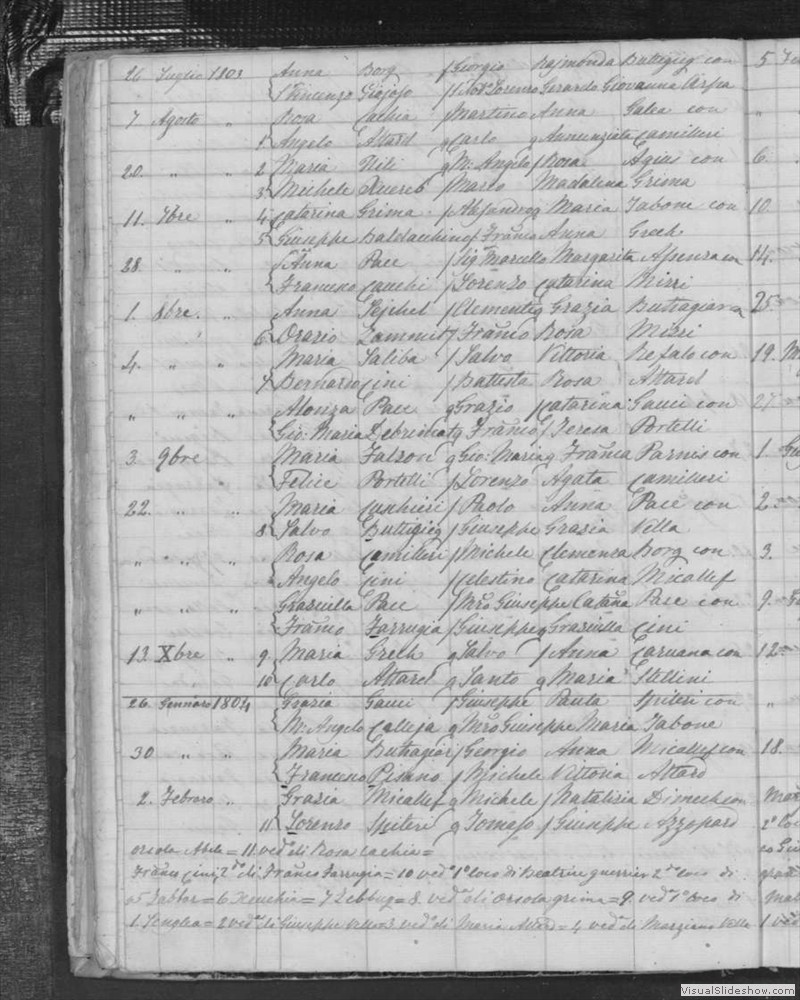 26 Luglio 1803 Anna Borg f Giorgio Rajmonda Buttigieg con 5
Vincenzo f Not Lorenzo Gerardo Giovanna
7 Agosto " Rosa Cachia f Martino Anna Galea con "
1 Angelo Attard q Carlo q Annunziata Camilleri
20. " " 2 Maria q M: Angelo f Rosa Agius con 6.
3 Michele Xuereb f Marco Madalena Grima
11. 7bre " 4 Catarina Grima f Alessandro q Maria Tabone con 10.
5 Giuseppe Baldacchino f Franco Anna Grech
28. " " Anna Pace f Sigr Marcello Margarita Assenza con 14.
Francesco Cauchi f Lorenzo Catarina Mizzi
1. 8bre. " Anna Sejchel f Clemente q Grazia Buttagiar con 25.
6 Orazio Zammit f Franco Rosa Mizzi
4. " " Maria Saliba f Salvo Vittoria Refalo con 19.
7 Bernardo Cini f Battista Rosa Attard
" " " Alonza Pace q Grazio f Catarina Gauci con 27
Gio: Maria Debrincat q Franco f Teresa Portelli
3. 9bre Maria Falzon q Gio: Maria q Franca Parnis con 1
Felice Portelli f Lorenzo Agata Camilleri
22. " " Maria f Paolo Anna Pace con 2.
8 Salvo Buttigieg f Giuseppe Grazia Vella
" " " Rosa Camilleri f Michele Clemenza Borg con 3.
Angelo Cini f Celestino Catarina Micallef
" " " Graziulla Pace f Mro Giuseppe Catarina Pace con 9.
Franco Farrugia f Giuseppe q Graziulla Cini
13. Xbre " 9. Maria Grech q Salvo f Anna Caruana con 12
10 Carlo Attard q Santo q Maria Stellini
26. Gennaro 1804 Grazia Gauci f Giuseppe Paula Spiteri con "
M: Angelo Calleja q Mro Giuseppe Maria Tabone
30 " " Maria Buttagiar f Georgio Anna Micallef con 18.
Francesco Pisano f Michele Vittoria Attard
2. Febraro " Grazia Micallef q Michele f Natalizia Dimech con
11 Lorenzo Spiteri q Tomaso f Giuseppe Azzopard
Orsola Abela = 11 vedo di Rosa Cachia =
Franco Cini, 2do di Franco Farrugia = 10 vedo 1o loco di Beatrice Guerrier 2o loco di
5 Zabbar = 6 Xeuchia = 7 Zebbug = 8. vedo di Orsola Grima = 9. vedo 1o loco di
1. Senglea = 2 vedo di Giuseppe Vella 3. vedo di Maria Attard = 4. vedo di Marziano Vella
VisualSlideshow.com